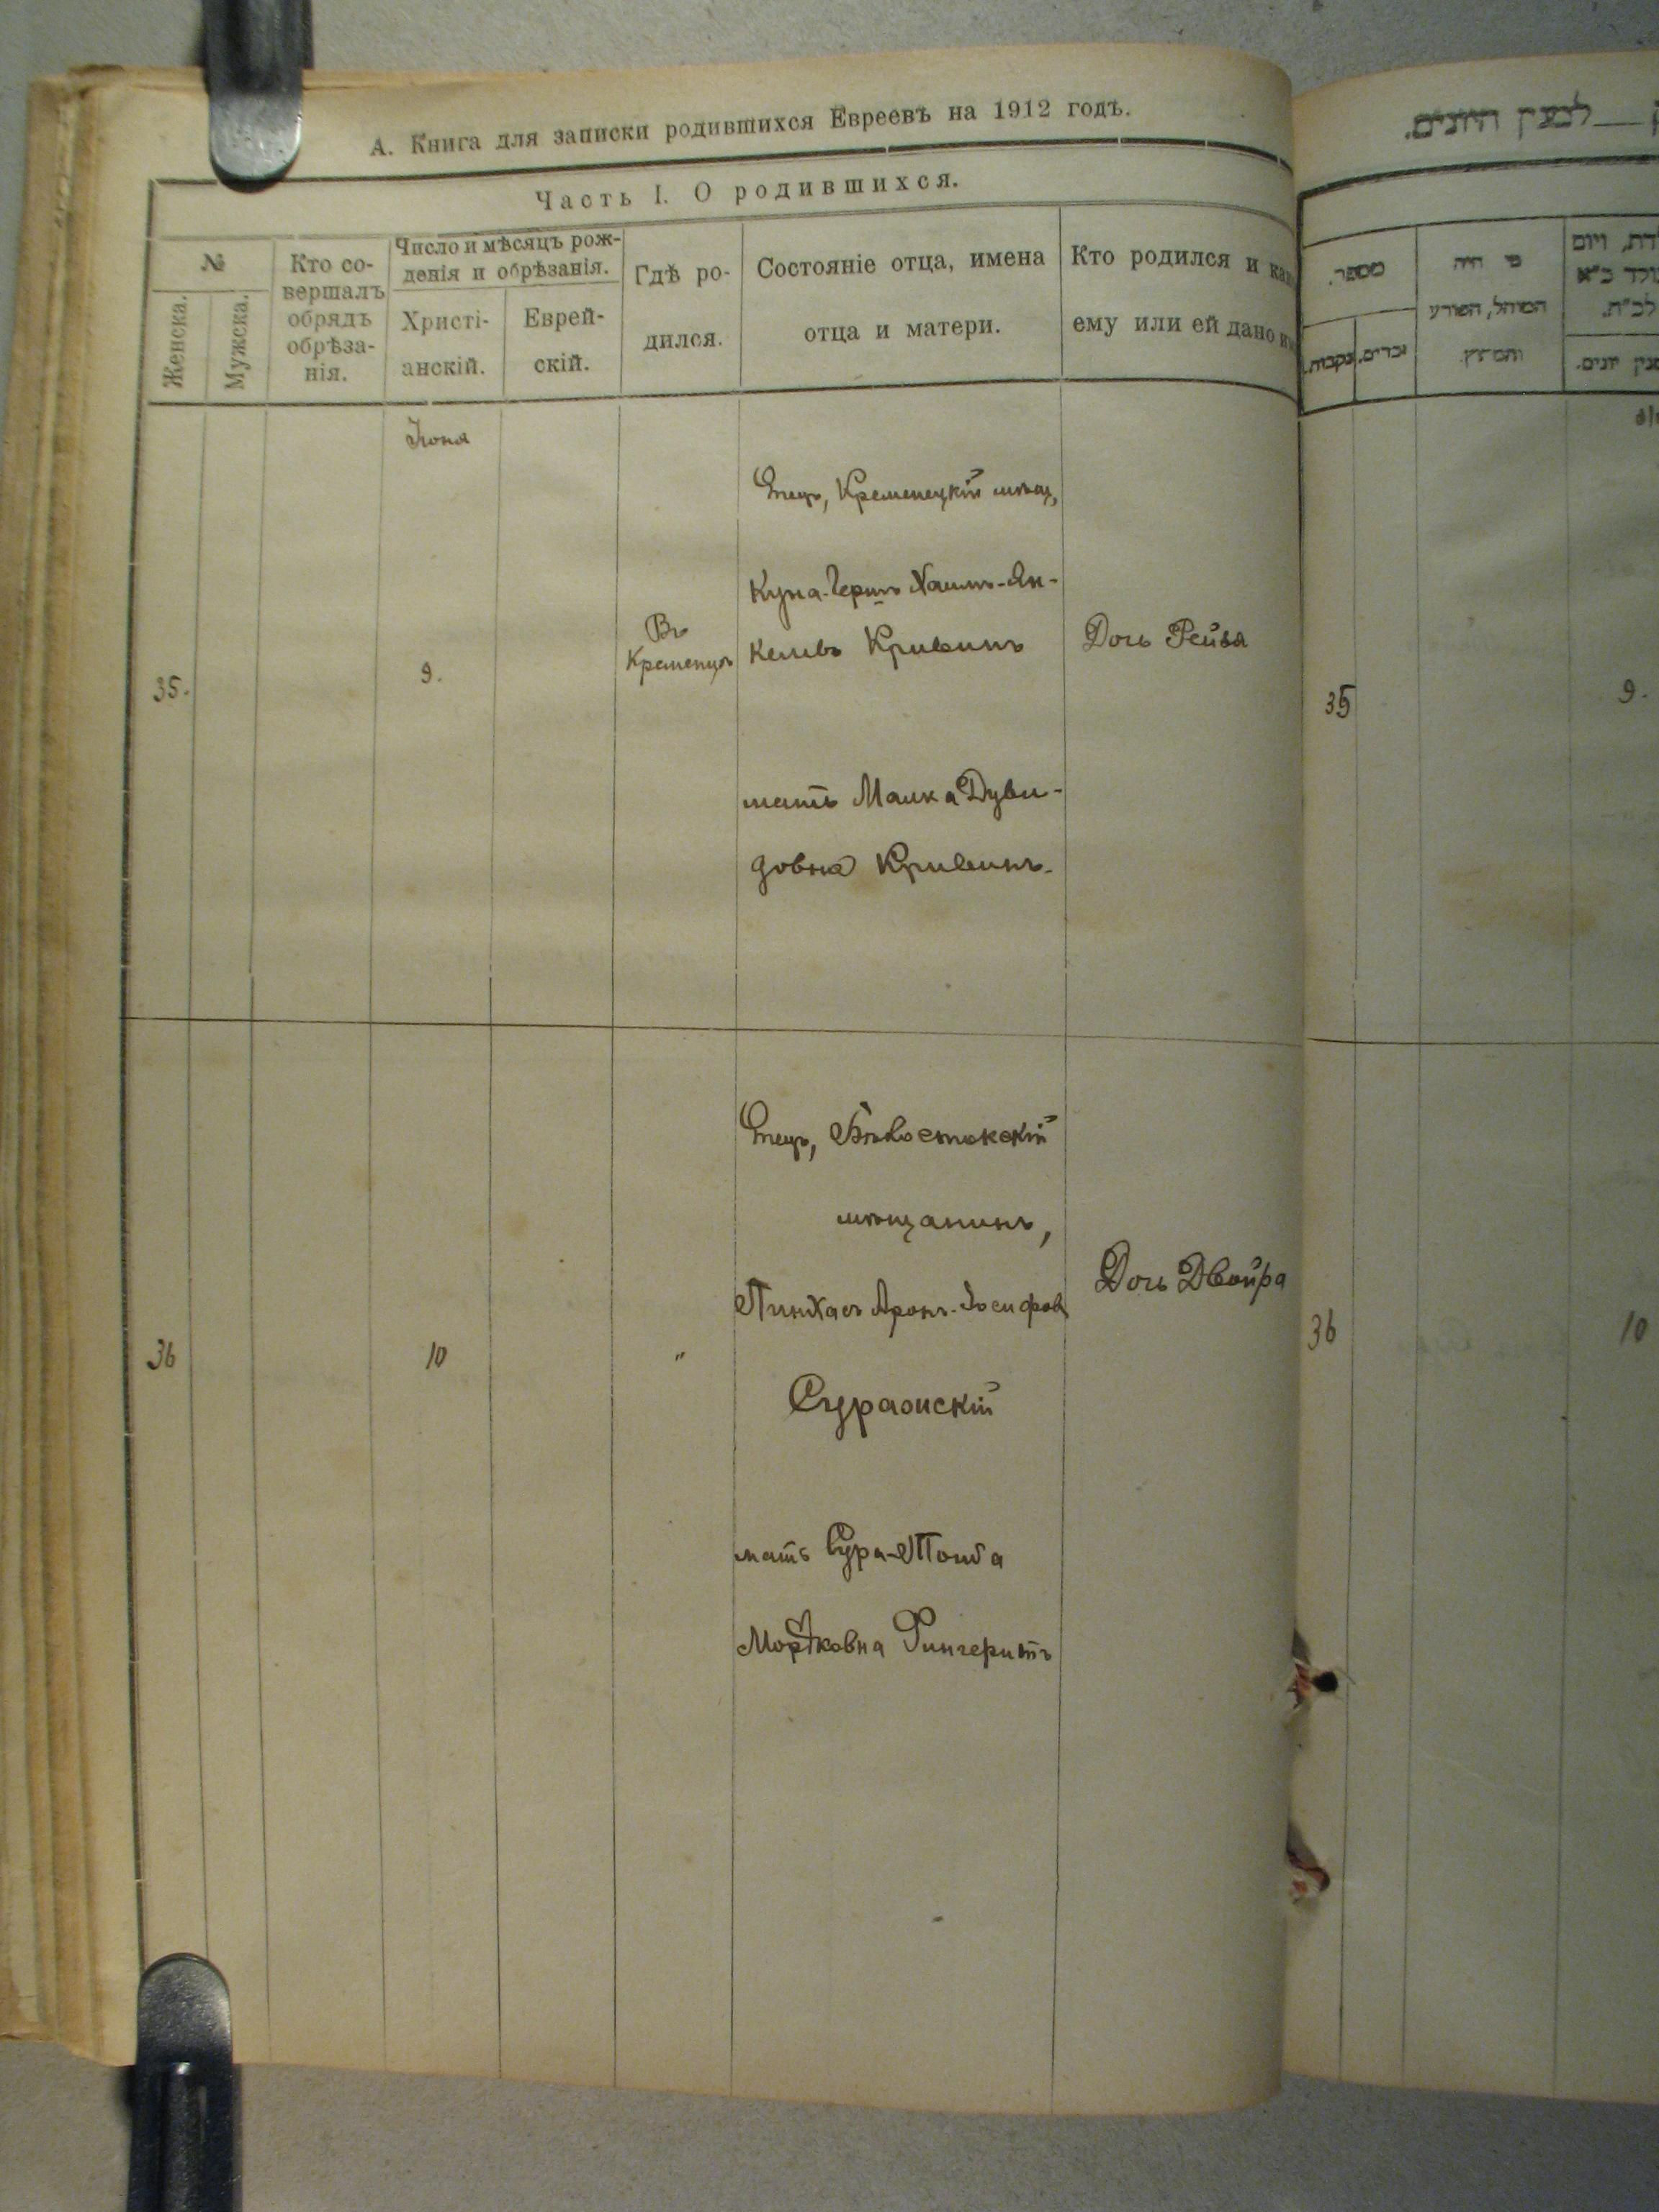 А. Книга для записки родившихся Евреевъ на 1912 годъ.
Часть I. О родившихся.
№
Женска.
Мужска.
Кто со-
вершалъ
обрядъ
обрѣза-
нія.
Число и мѣсяцъ рож-
денія и обрѣзанія.
Христі-
анскій.
Еврей-
скій.
Гдѣ ро-
дился.
Состояніе отца, имена
отца и матери.
Кто родился и как
ему или ей дано и
Іюня
35.
9.
Въ
Кременцѣ
Отецъ, Кременецкій мѣщ.,
Куна-Гершъ Хаимъ-Ян-
келевъ Кривинъ
мать Малка Дуви-
довна Кривинъ.
Дочь Рейзя
36
10
"
Отецъ, Бѣлостокскій
мѣщанинъ,
Пинхасъ Аронъ-Іосифов
Суражскій
мать Сура-Тоиба
Мордковна Фингерутъ
Дочь Двойра
לבנין היונים.
מספר.
נקבות.
זכרים.
מי היה
המוהל, הפורע
והמוצץ.
35
9.
36
10